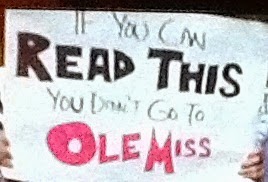 IF YOU CAN
READ THIS
YOU DON'T GO TO
OLE MISS